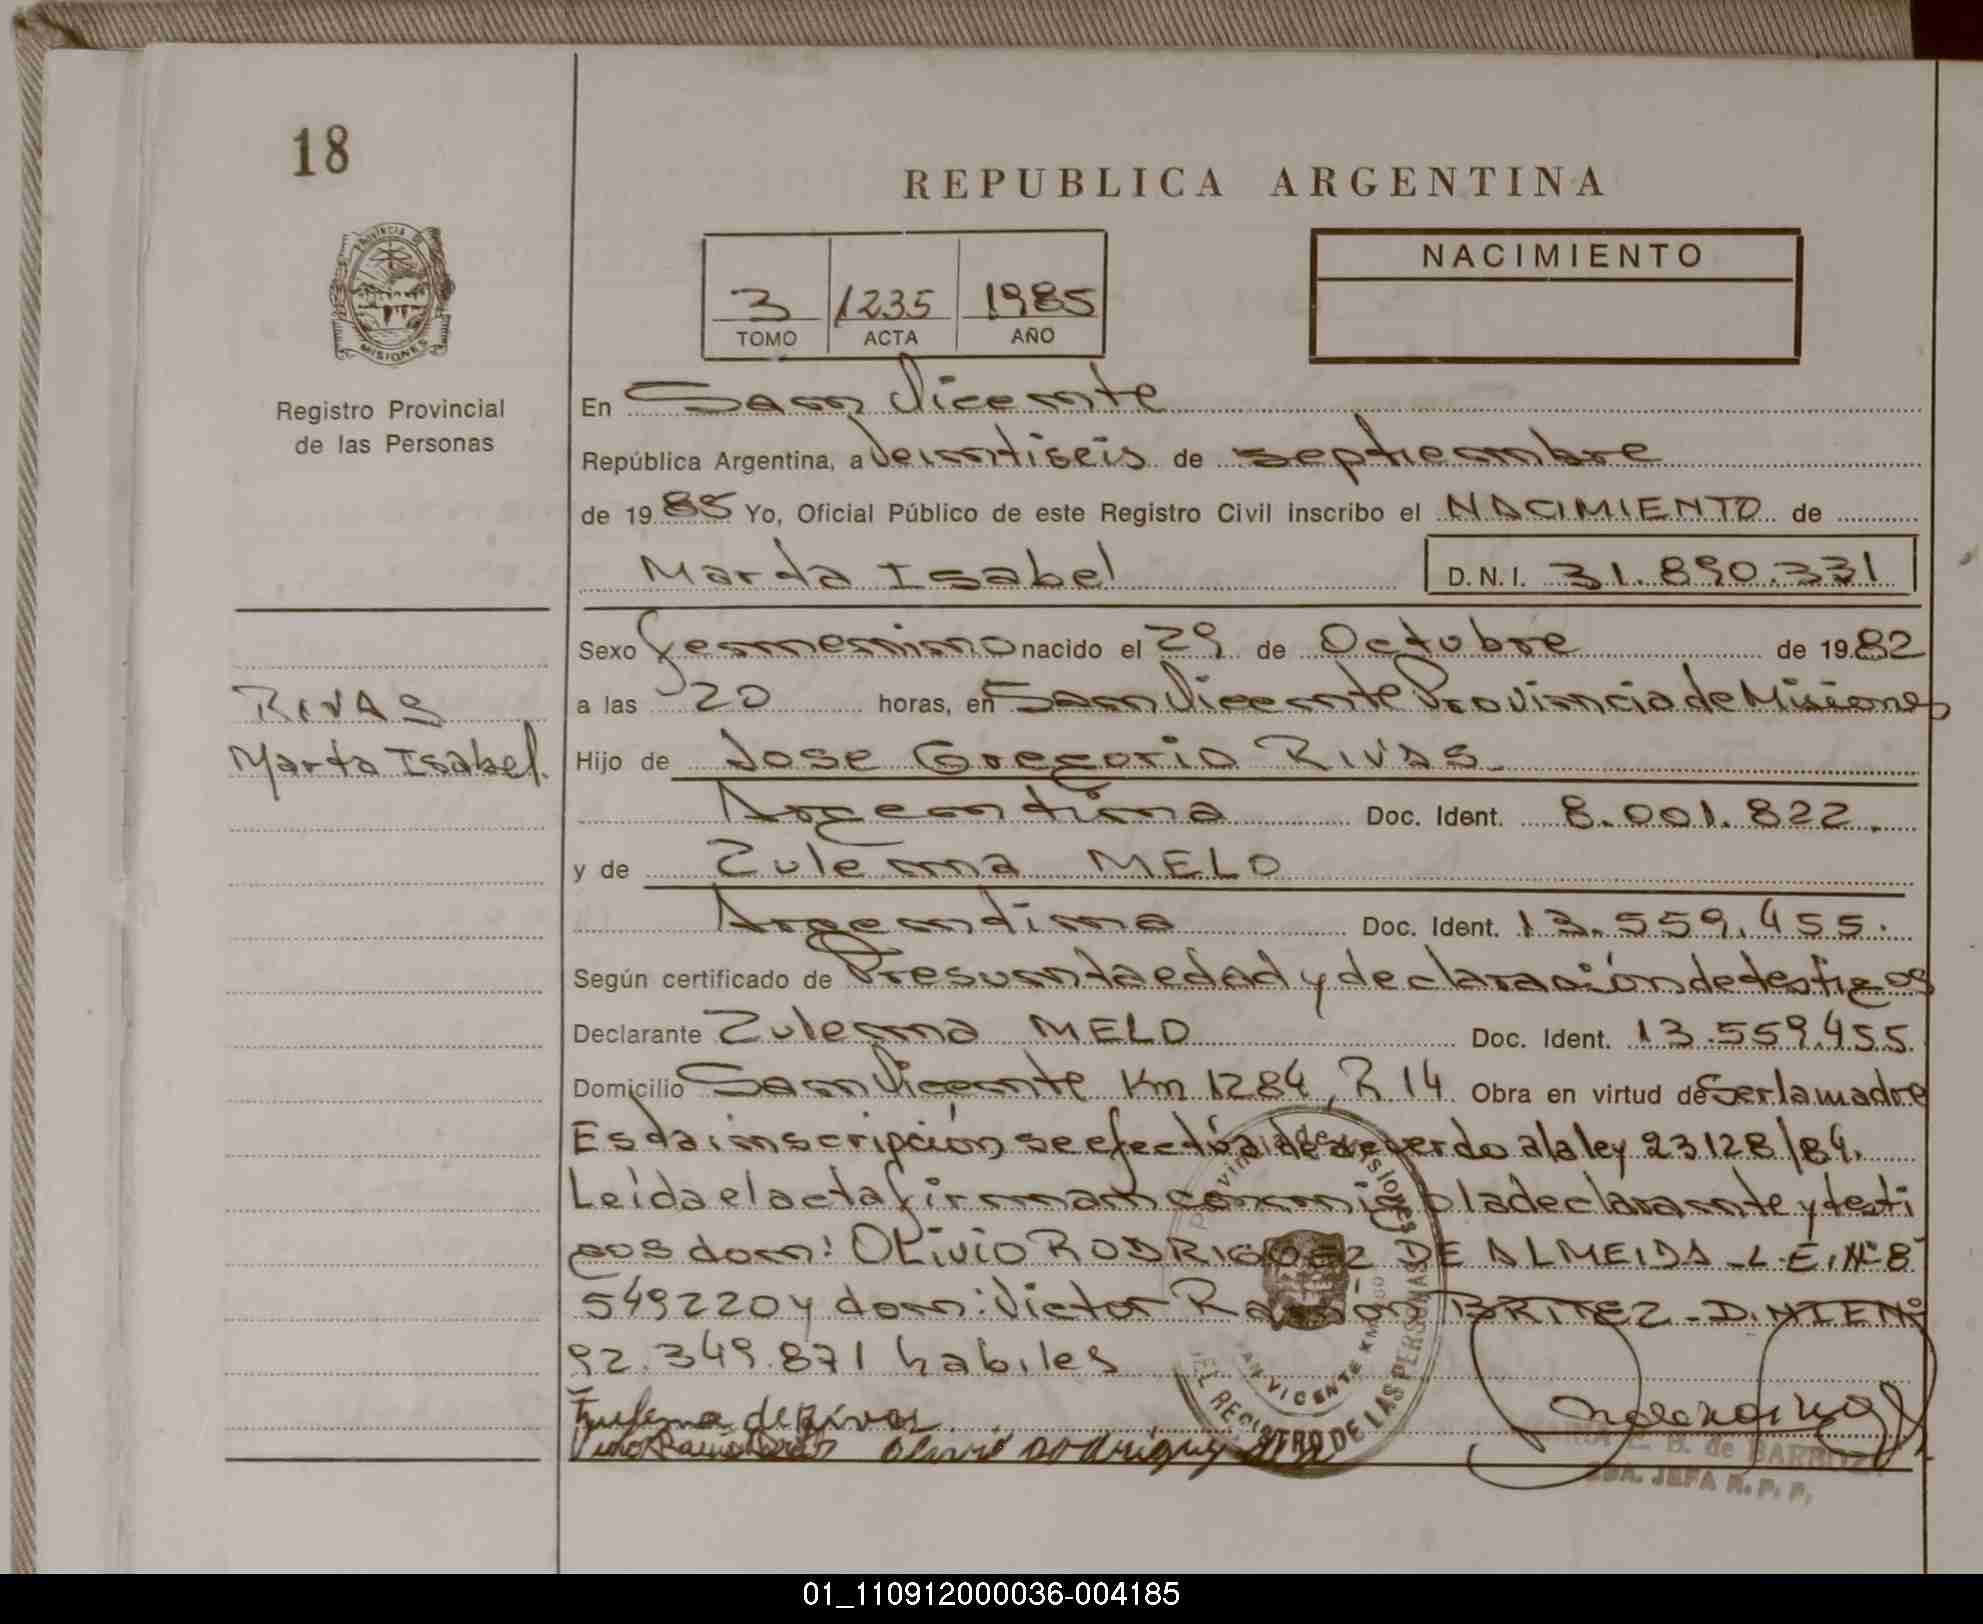 18
REPUBLICA ARGENTINA
PROVINCIA DE
MISIONES
Registro Provincial
de las Personas
3 1235 1985
TOMO ACTA AÑO
NACIMIENTO
En San Vicente
República Argentina, a veintiseis de septiembre
de 1985 Yo, Oficial Público de este Registro Civil inscribo el NACIMIENTO de
Marta Isabel D.N.I. 31.890.331
Sexo femenino nacido el 29 de Octubre de 1982
a las 20 horas, en San Vicente Provincia de Misiones
RIVAS
Marta Isabel.
Hijo de Jose Gregorio RIVAS
Argentina Doc. Ident. 8.001.822.
y de Zulema MELO
Argentina Doc. Ident. 13.559.455.
Según certificado de Presunta edad y declaración de testigos
Declarante Zulema MELO Doc. Ident. 13.559.455
Domicilio San Vicente Km 1284, R 14 Obra en virtud de Ser la madre
Esta inscripción se efectúa de acuerdo a la ley 23128/84.
Leída el acta firman conmigo la declarante y testi
gos don: OLIVIO RODRIGUEZ DE ALMEIDA - L.E. Nº 8
549220 y don: Victor Ramón BRITEZ - D.N.I.E Nº
92.349.871 habiles
Zulema de Rivas
Olivio Rodriguez
Provincia de Misiones
SAN VICENTE KM
DEL REGISTRO DE LAS PERSONAS
E. B. de BARBOZA
JEFA R. P. P.
01_110912000036-004185